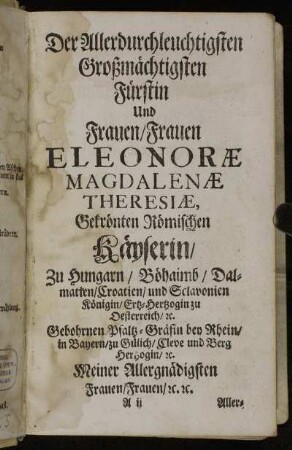 Der Allerdurchleuchtigsten
Großmächtigsten
Fürstin
Und
Frauen/Frauen
ELEONORÆ
MAGDALENÆ
THERESIÆ,
Gekrönten Römischen
Käyserin/
Zu Hungarn/ Böhaimb/ Dal-
matien/Croatien/und Sclavonien
Königin/Ertz-Hertzogin zu
Oesterreich/ ꝛc.
Gebohrnen Pfaltz-Gräfin bey Rhein/
in Bayern/zu Gülich/ Cleve und Berg
Hertzogin/ ꝛc.
Meiner Allergnädigsten
Frauen/Frauen/ ꝛc. ꝛc.
A ij
Aller-